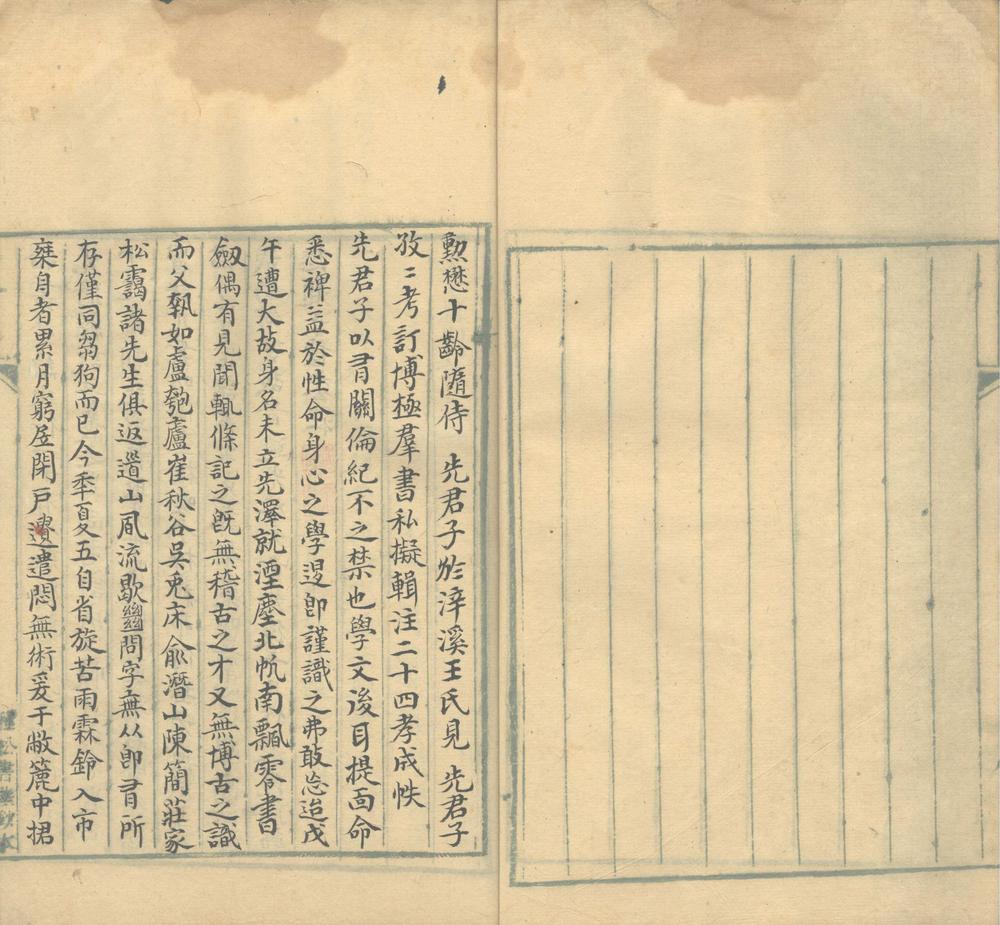 勲懋十齡隨侍　先君子於淬溪王氏見　先君子
孜〻考訂博極羣書私擬輯注二十四孝成帙
先君子以書關倫紀不之禁也學文後耳提面命
悉裨益於性命身心之學退即謹識之弗敢忘迨戊
午遭大故身名未立先澤就湮塵北帆南飄零書
劔偶有見聞輒條記之旣無稽古之才又無博古之識
而父執如盧匏廬崔秋谷吳兎床俞潛山陳簡莊家
松靄諸先生俱返道山風流歇問字無从即書所
存僅同芻狗而已今秊夏五自省旋苦雨霖鈴入市
糵自者累月窮居閉戶遣悶無術爰于敝簏中捃
種松書塾鈔本